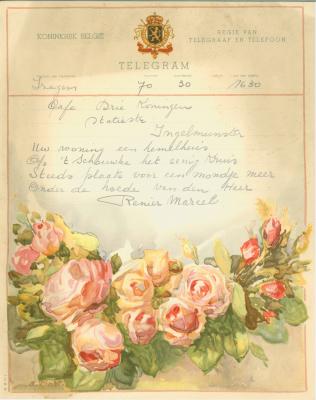 KONINKRIJK BELGIË
REGIE VAN
TELEGRAAF EN TELEFOON
TELEGRAM
Izegem 70 30 1630
Café Drie Koningen
Statiestr
Ingelmunster
Uw woning een hemelhuis
Op 't Schouwke het eenig kuis
Steeds plaats voor een mondje meer
Onder de hoede van den Heer
Renier Marcel